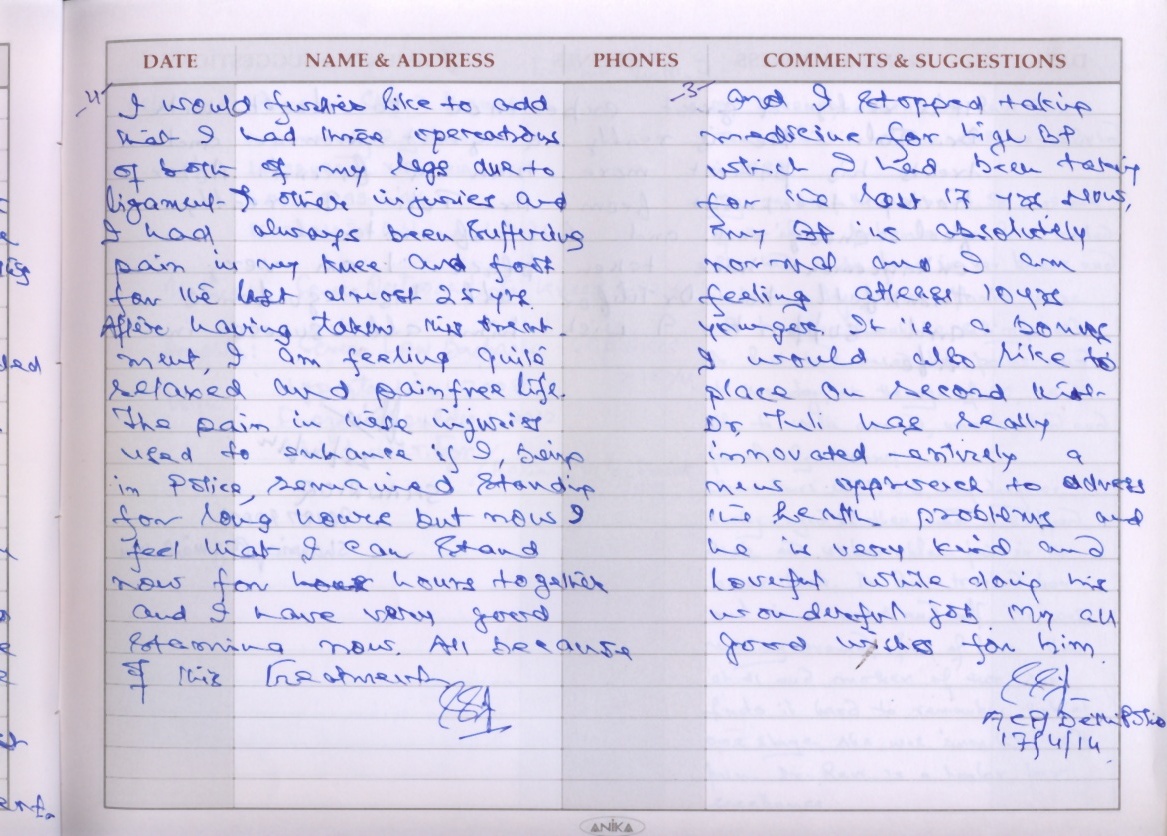 DATE NAME & ADDRESS PHONES COMMENTS & SUGGESTIONS
I would further like to add
that I had three operations
of both of my legs due to
ligament & other injuries and
I had always been suffering
pain in my knee and foot
for the last almost 25 yrs.
After having taken this treat-
ment, I am feeling quite
relaxed and painfree life.
The pain in these injuries
used to enhance if I, being
in Police, remained standing
for long hours but now I
feel that I can stand
now for hours together
and I have very good
stamina now. All because
of this Treatment
3 And I stopped taking
medicine for high BP
which I had been taking
for the last 17 yrs. Now,
my BP is absolutely
normal and I am
feeling atleast 10 yrs
younger. It is a bonus
I would also like to
place on record that
Dr. Tuli has really
innovated entirely a
new approach to adress
the health problems and
he is very kind and
loveful while doing his
wonderful job. My all
good wishes for him.
ACP/Delhi Police
17/4/14
ANIKA